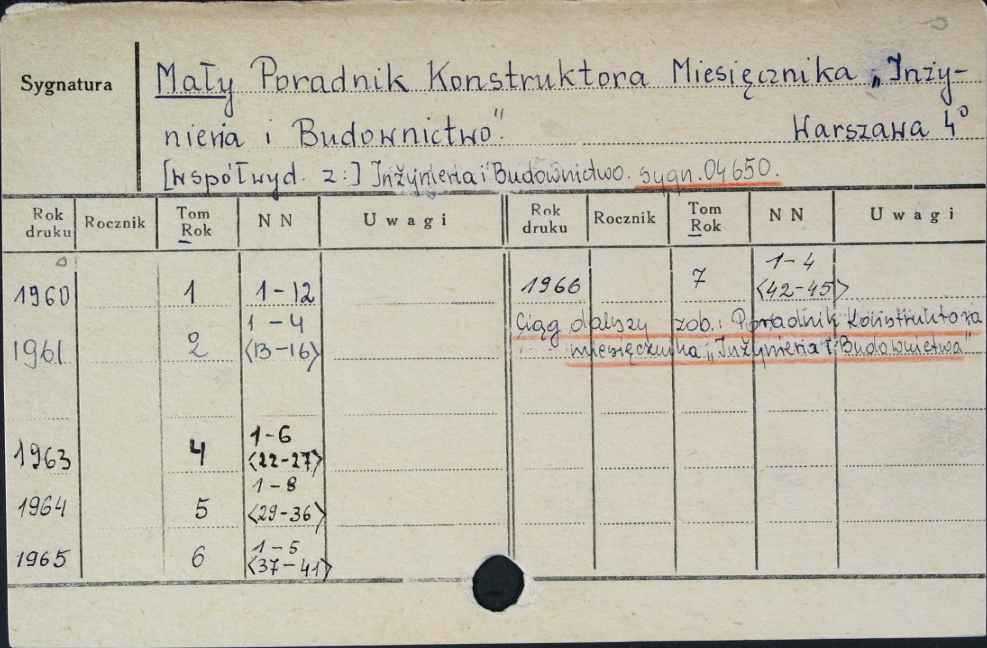 Sygnatura
Mały Poradnik Konstruktora Miesięcznika „Inży-
nieria i Budownictwo". Warszawa 4°
[współwyd. z:] Inżynieria i Budownictwo. sygn. 04650.
Rok druku Rocznik Tom Rok N N Uwagi Rok druku Rocznik Tom Rok N N Uwagi
1960 1 1-12 1966 7 1-4 <42-45>
1961 2 1-4 <13-16> Ciąg dalszy zob.: Poradnik Konstruktora
miesięcznika „Inżynieria i Budownictwa"
1963 4 1-6 <22-27>
1964 5 1-8 <29-36>
1965 6 1-5 <37-41>